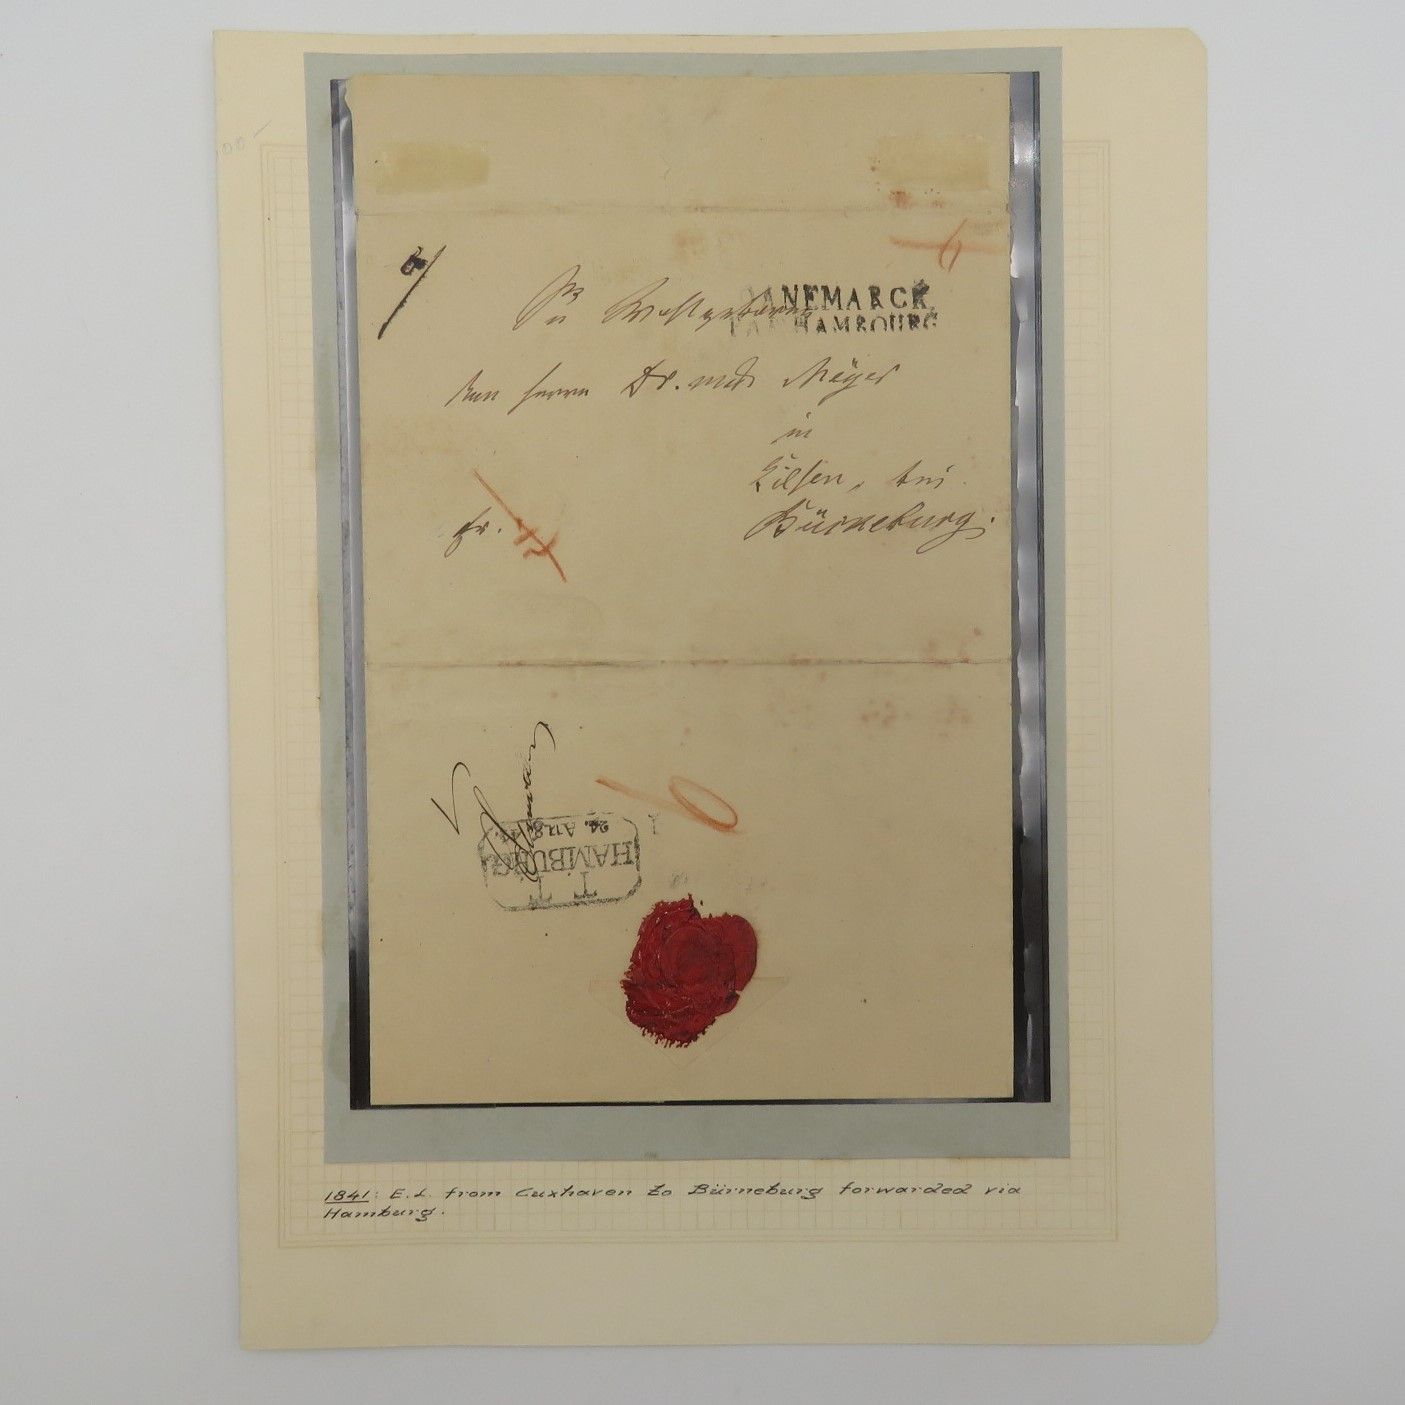 DANEMARCK
PAR HAMBOURG
Herrn Dr. med. Meÿer
in
Eilsen, bei
Bückeburg.
fr.
T.T.
HAMBURG
24. AUG. 41.
1841: E.L. from Cuxhaven to Bürneburg forwarded via
Hamburg.